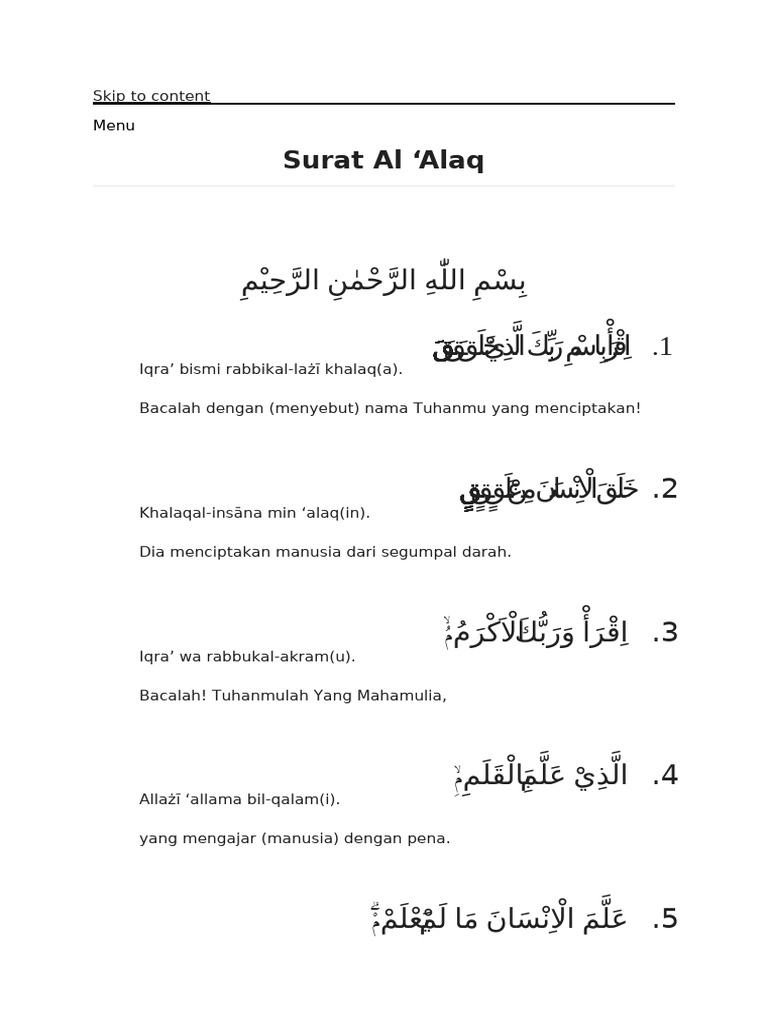 Skip to content
Menu
Surat Al ‘Alaq
بِسْمِ اللّٰهِ الرَّحْمٰنِ الرَّحِيْمِ
1. اِقْرَأْ بِاسْمِ رَبِّكَ الَّذِيْ خَلَقَ
Iqra’ bismi rabbikal-lażī khalaq(a).
Bacalah dengan (menyebut) nama Tuhanmu yang menciptakan!
2. خَلَقَ الْاِنْسَانَ مِنْ عَلَقٍ
Khalaqal-insāna min ‘alaq(in).
Dia menciptakan manusia dari segumpal darah.
3. اِقْرَأْ وَرَبُّكَ الْاَكْرَمُۙ
Iqra’ wa rabbukal-akram(u).
Bacalah! Tuhanmulah Yang Mahamulia,
4. الَّذِيْ عَلَّمَ بِالْقَلَمِۙ
Allażī ‘allama bil-qalam(i).
yang mengajar (manusia) dengan pena.
5. عَلَّمَ الْاِنْسَانَ مَا لَمْ يَعْلَمْۗ